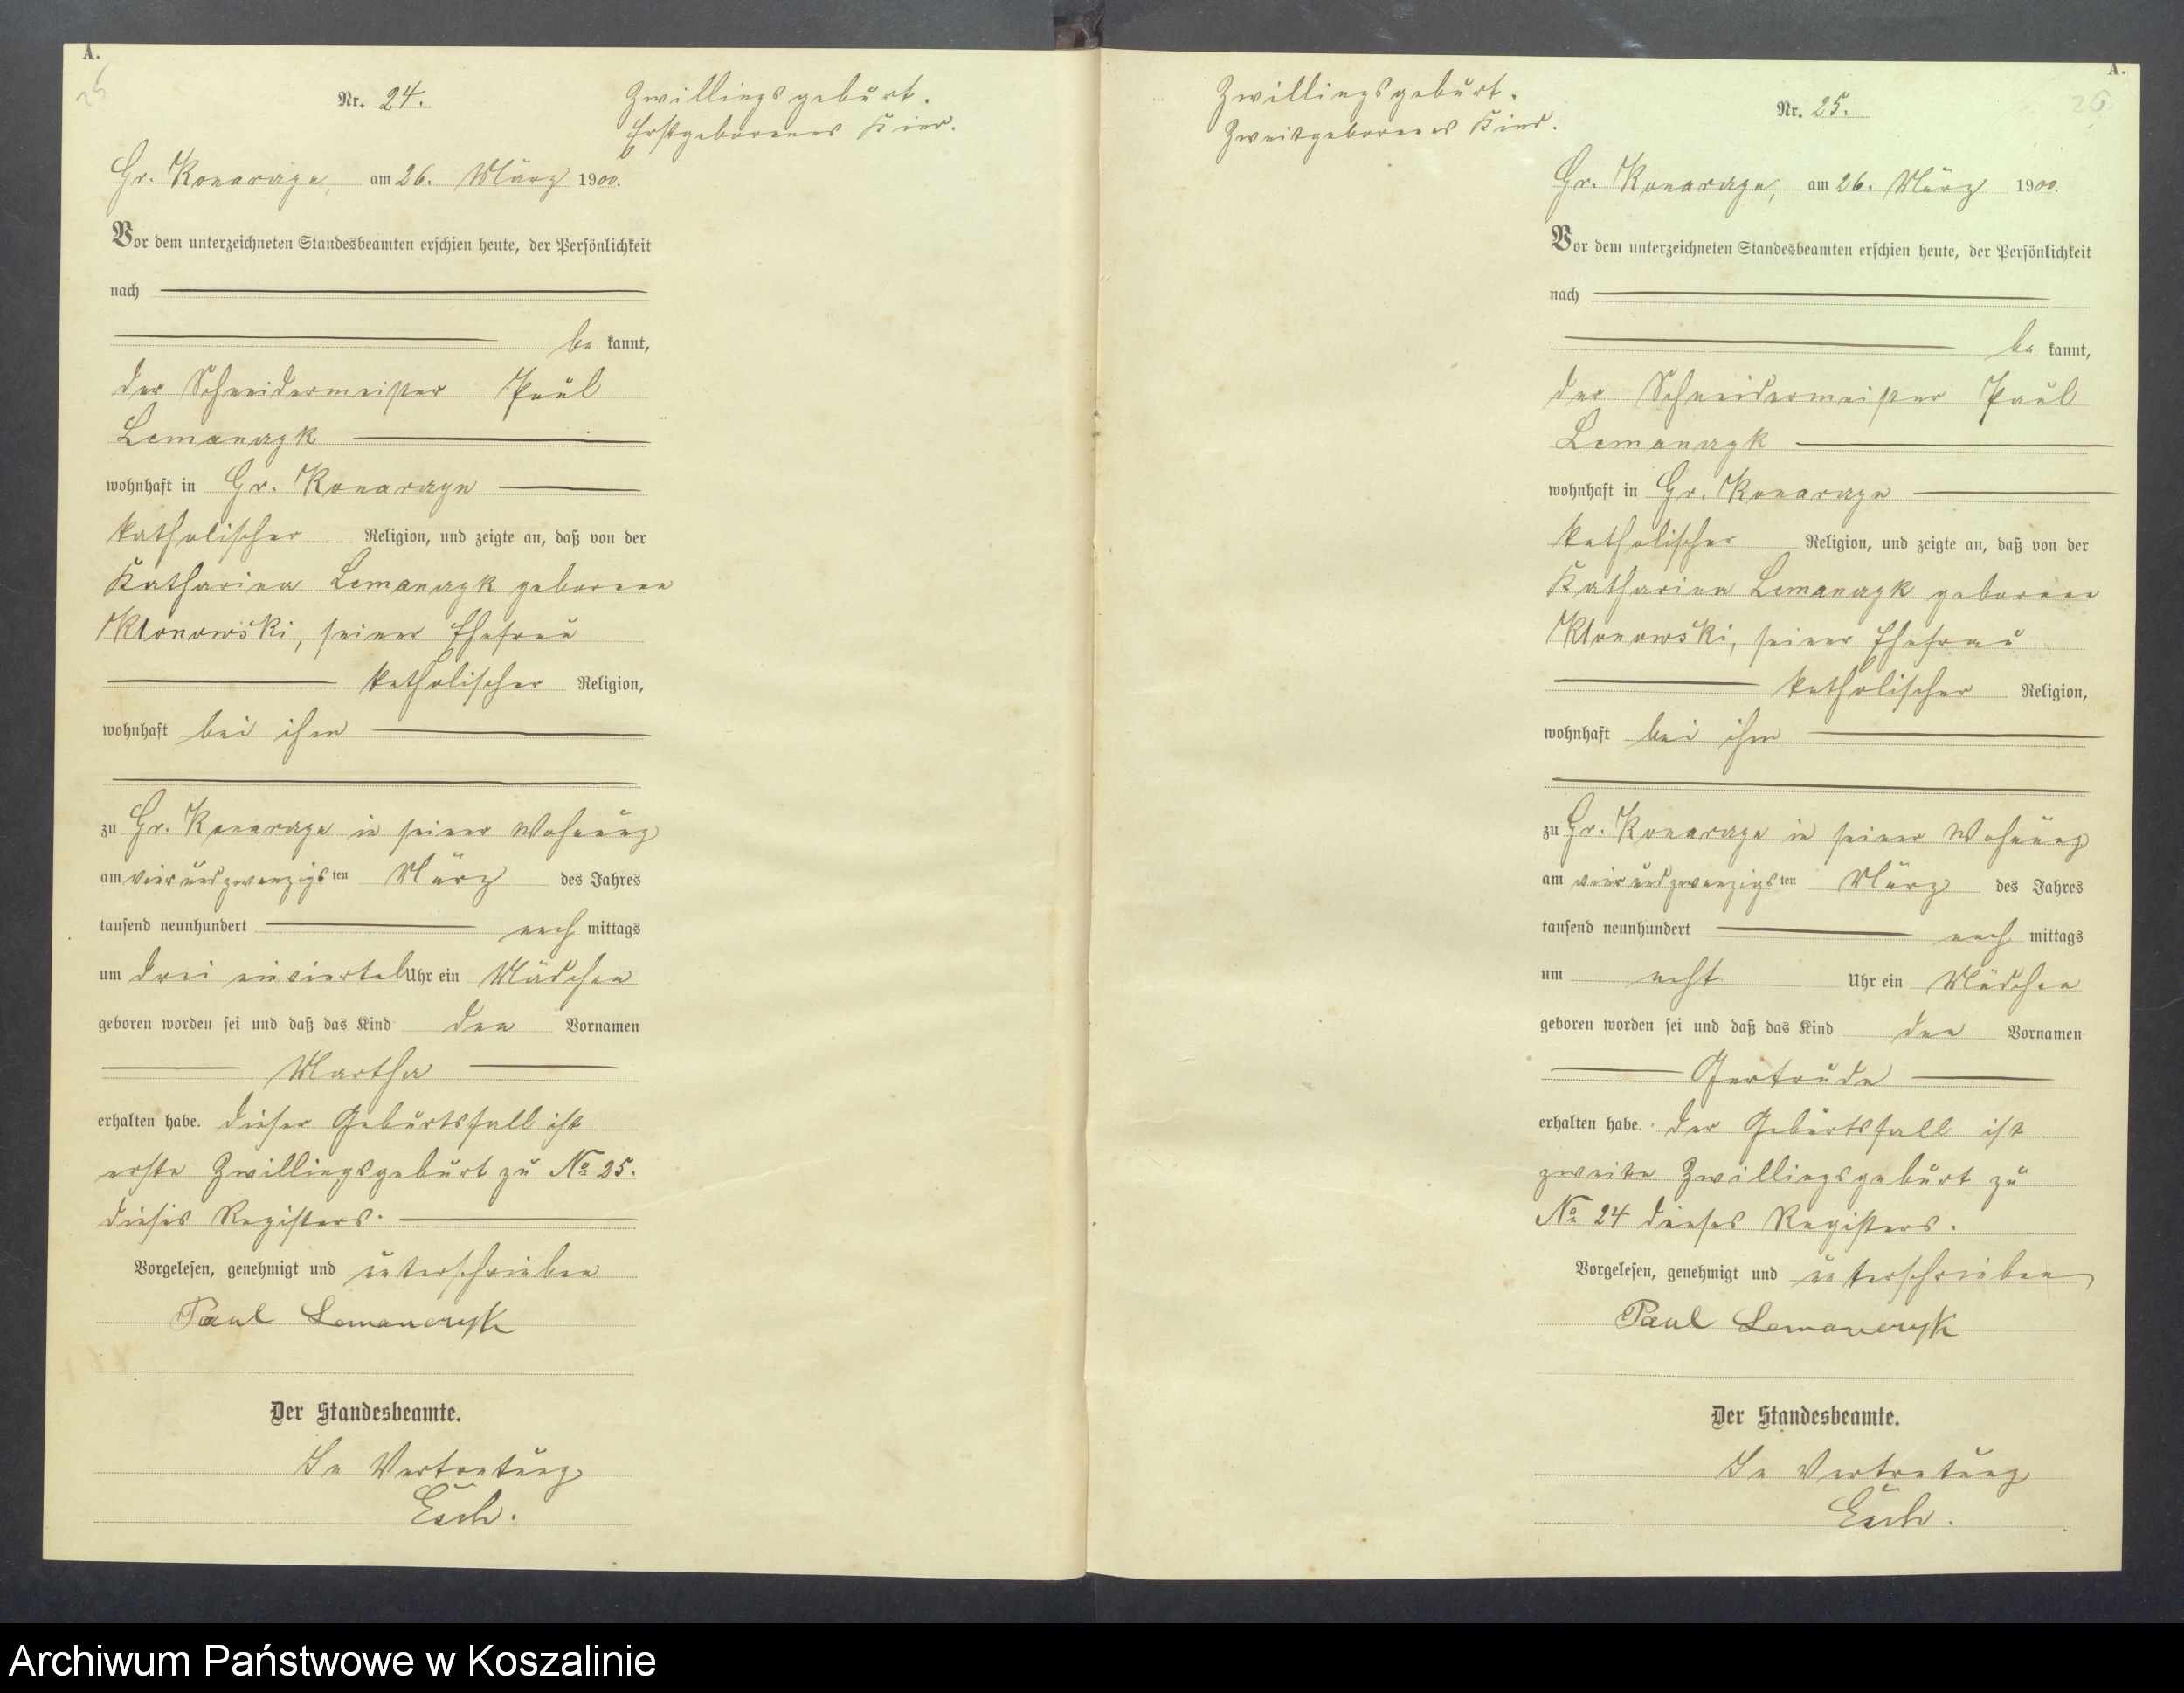 A.
25
Nr. 24.
Zwillingsgeburt.
Erstgeborenes Kind.
Gr. Konarczyn, am 26. März 1900.
Vor dem unterzeichneten Standesbeamten erschien heute, der Persönlichkeit
nach
be kannt,
der Schneidermeister Paul
Lemanczyk
wohnhaft in Gr. Konarczyn
katholischer Religion, und zeigte an, daß von der
Katharina Lemanczyk geborene
Klonowski, seiner Ehefrau
katholischer Religion,
wohnhaft bei ihm
zu Gr. Konarczyn in seiner Wohnung
am vierundzwanzigsten März des Jahres
tausend neunhundert nach mittags
um drei einviertel Uhr ein Mädchen
geboren worden sei und daß das Kind den Vornamen
Martha
erhalten habe. Dieser Geburtsfall ist
erste Zwillingsgeburt zu No 25.
dieses Registers.
Vorgelesen, genehmigt und unterschrieben
Paul Lemanczyk
Der Standesbeamte.
In Vertretung
Esch.
A.
26
Zwillingsgeburt.
Zweitgeborenes Kind.
Nr. 25.
Gr. Konarczyn, am 26. März 1900.
Vor dem unterzeichneten Standesbeamten erschien heute, der Persönlichkeit
nach
be kannt,
der Schneidermeister Paul
Lemanczyk
wohnhaft in Gr. Konarczyn
katholischer Religion, und zeigte an, daß von der
Katharina Lemanczyk geborene
Klonowski, seiner Ehefrau
katholischer Religion,
wohnhaft bei ihm
zu Gr. Konarczyn in seiner Wohnung
am vierundzwanzigsten März des Jahres
tausend neunhundert nach mittags
um acht Uhr ein Mädchen
geboren worden sei und daß das Kind den Vornamen
Gertrude
erhalten habe. Der Geburtsfall ist
zweite Zwillingsgeburt zu
No 24 dieses Registers.
Vorgelesen, genehmigt und unterschrieben
Paul Lemanczyk
Der Standesbeamte.
In Vertretung
Esch.
Archiwum Państwowe w Koszalinie